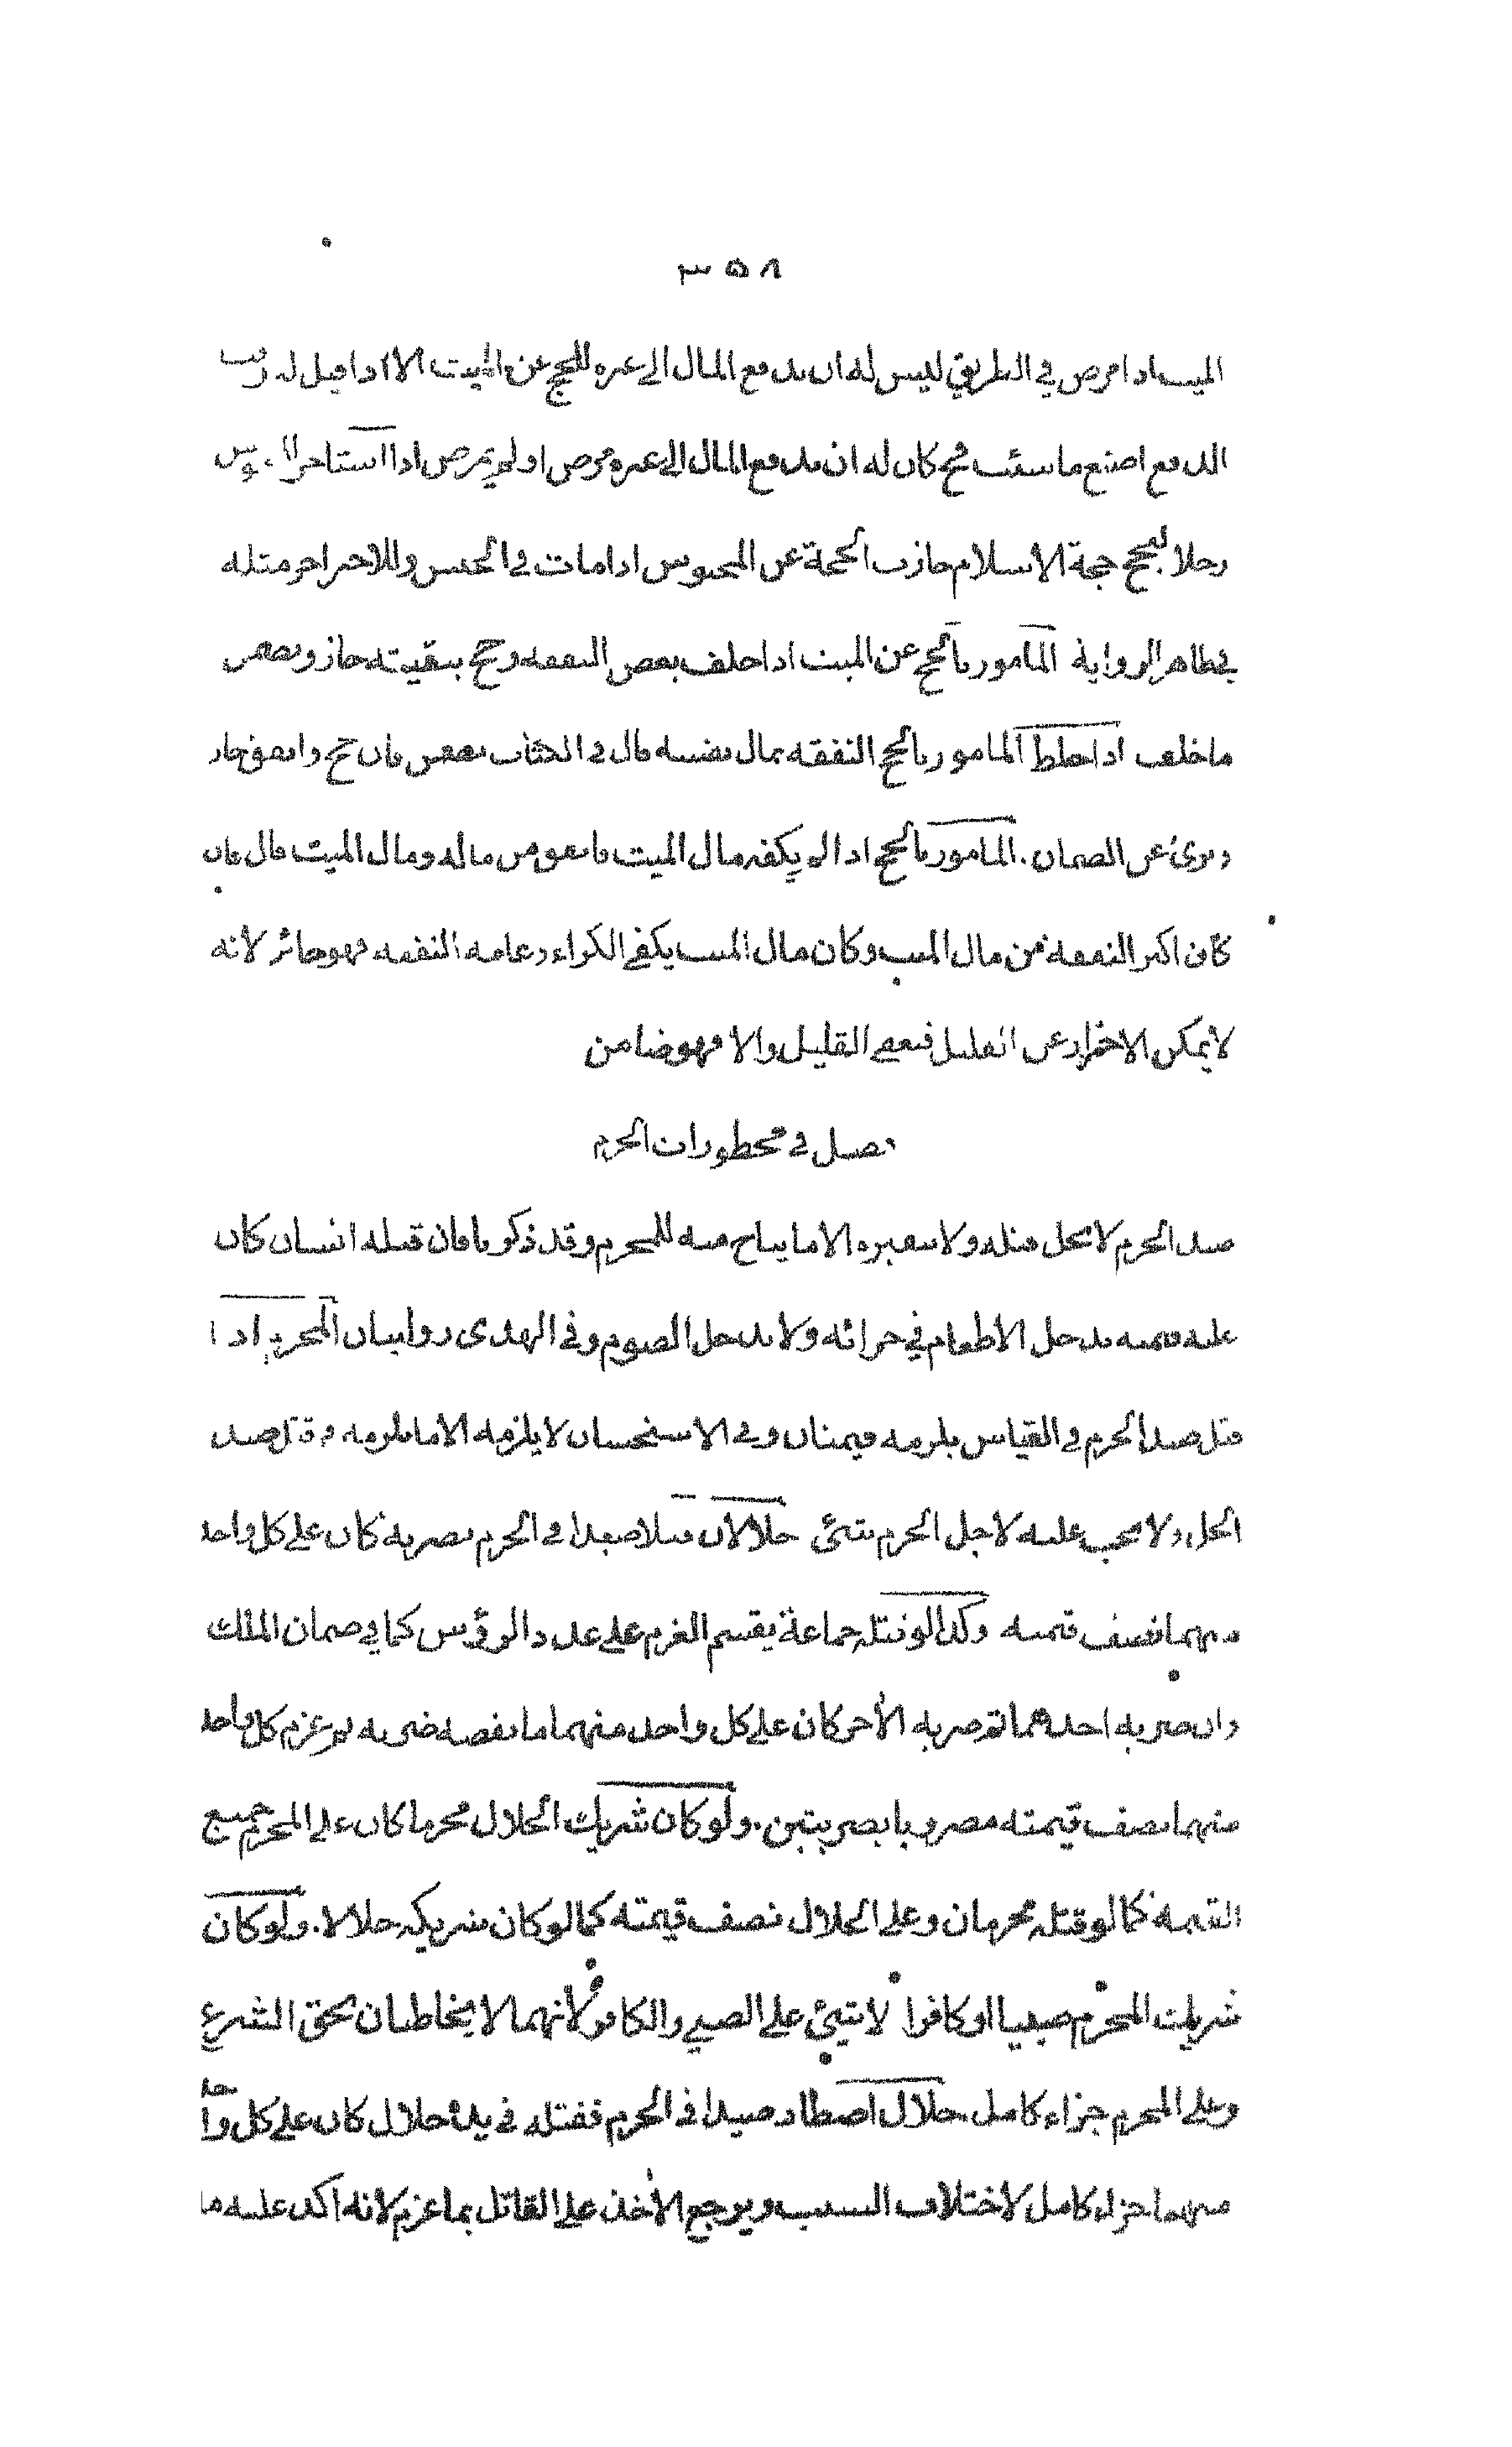 ٣٥٨
الميت اذا مرض في الطريق ليس له ان يدفع المال الى غيره ليحج عن الميت الا اذا قيل له وقت
الدفع اصنع ما شئت فح كان له ان يدفع المال الى غيره مرض او لم يمرض اذا استاجر المحبوس
رجلا ليحج حجة الاسلام جازت الحجة عن المحبوس اذا مات في الحبس وللاجير اجر مثله
في ظاهر الرواية المامور بالحج عن الميت اذا خلف بعض النفقه وحج ببقيته جاز ويضمن
ما خلف اذا خلط المامور بالحج النفقه بمال نفسه قال في الكتاب يضمن فان حج وانفق جاز
وبرئ عن الضمان. المامور بالحج اذا لم يكفه مال الميت فانفق من ماله ومال الميت قال فان
كان اكثر النفقه من مال الميت وكان مال الميت يكفي الكراء وعامه النفقه فهو جائز لانه
لا يمكن الاحتراز عن القليل فيعفى القليل والا فهو ضامن
فصل في محظورات الحرم
صيد الحرم لا يحل قتله ولا تنفيره الا ما يباح منه للمحرم وقد ذكرنا فان قتله انسان كان
عليه قيمته يدخل الاطعام في جزائه ولا يدخل الصوم وفي الهدى روايتان المحرم اذا
قتل صيد الحرم في القياس يلزمه قيمتان وفي الاستحسان لا يلزمه الا ما يلزمه في قتل صيد
الحل ولا يجب عليه لاجل الحرم شئ حلالان قتلا صيدا في الحرم بضربة كان على كل واحد
منهما نصف قيمته وكذا لو قتله جماعة يقسم الغرم على عدد الرؤس كما في ضمان الملك
وان ضربه احدهما ثم ضربه الآخر كان على كل واحد منهما ما نقصه ضربه ثم غرم كل واحد
منهما نصف قيمته مضروبا بضربتين. ولو كان شريك الحلال محرما كان على المحرم جميع
القيمه كما لو قتله محرمان وعلى الحلال نصف قيمته كما لو كان شريكه حلالا. ولو كان
شريك المحرم صبيا او كافرا لا شئ على الصبي والكافر لانهما لا يخاطبان بحق الشرع
وعلى المحرم جزاء كامل. حلال اصطاد صيدا في الحرم فقتله في يده حلال كان على كل واحد
منهما جزاء كامل لاختلاف السبب ويرجع الآخذ على القاتل بما غرم لانه اكد عليه ما